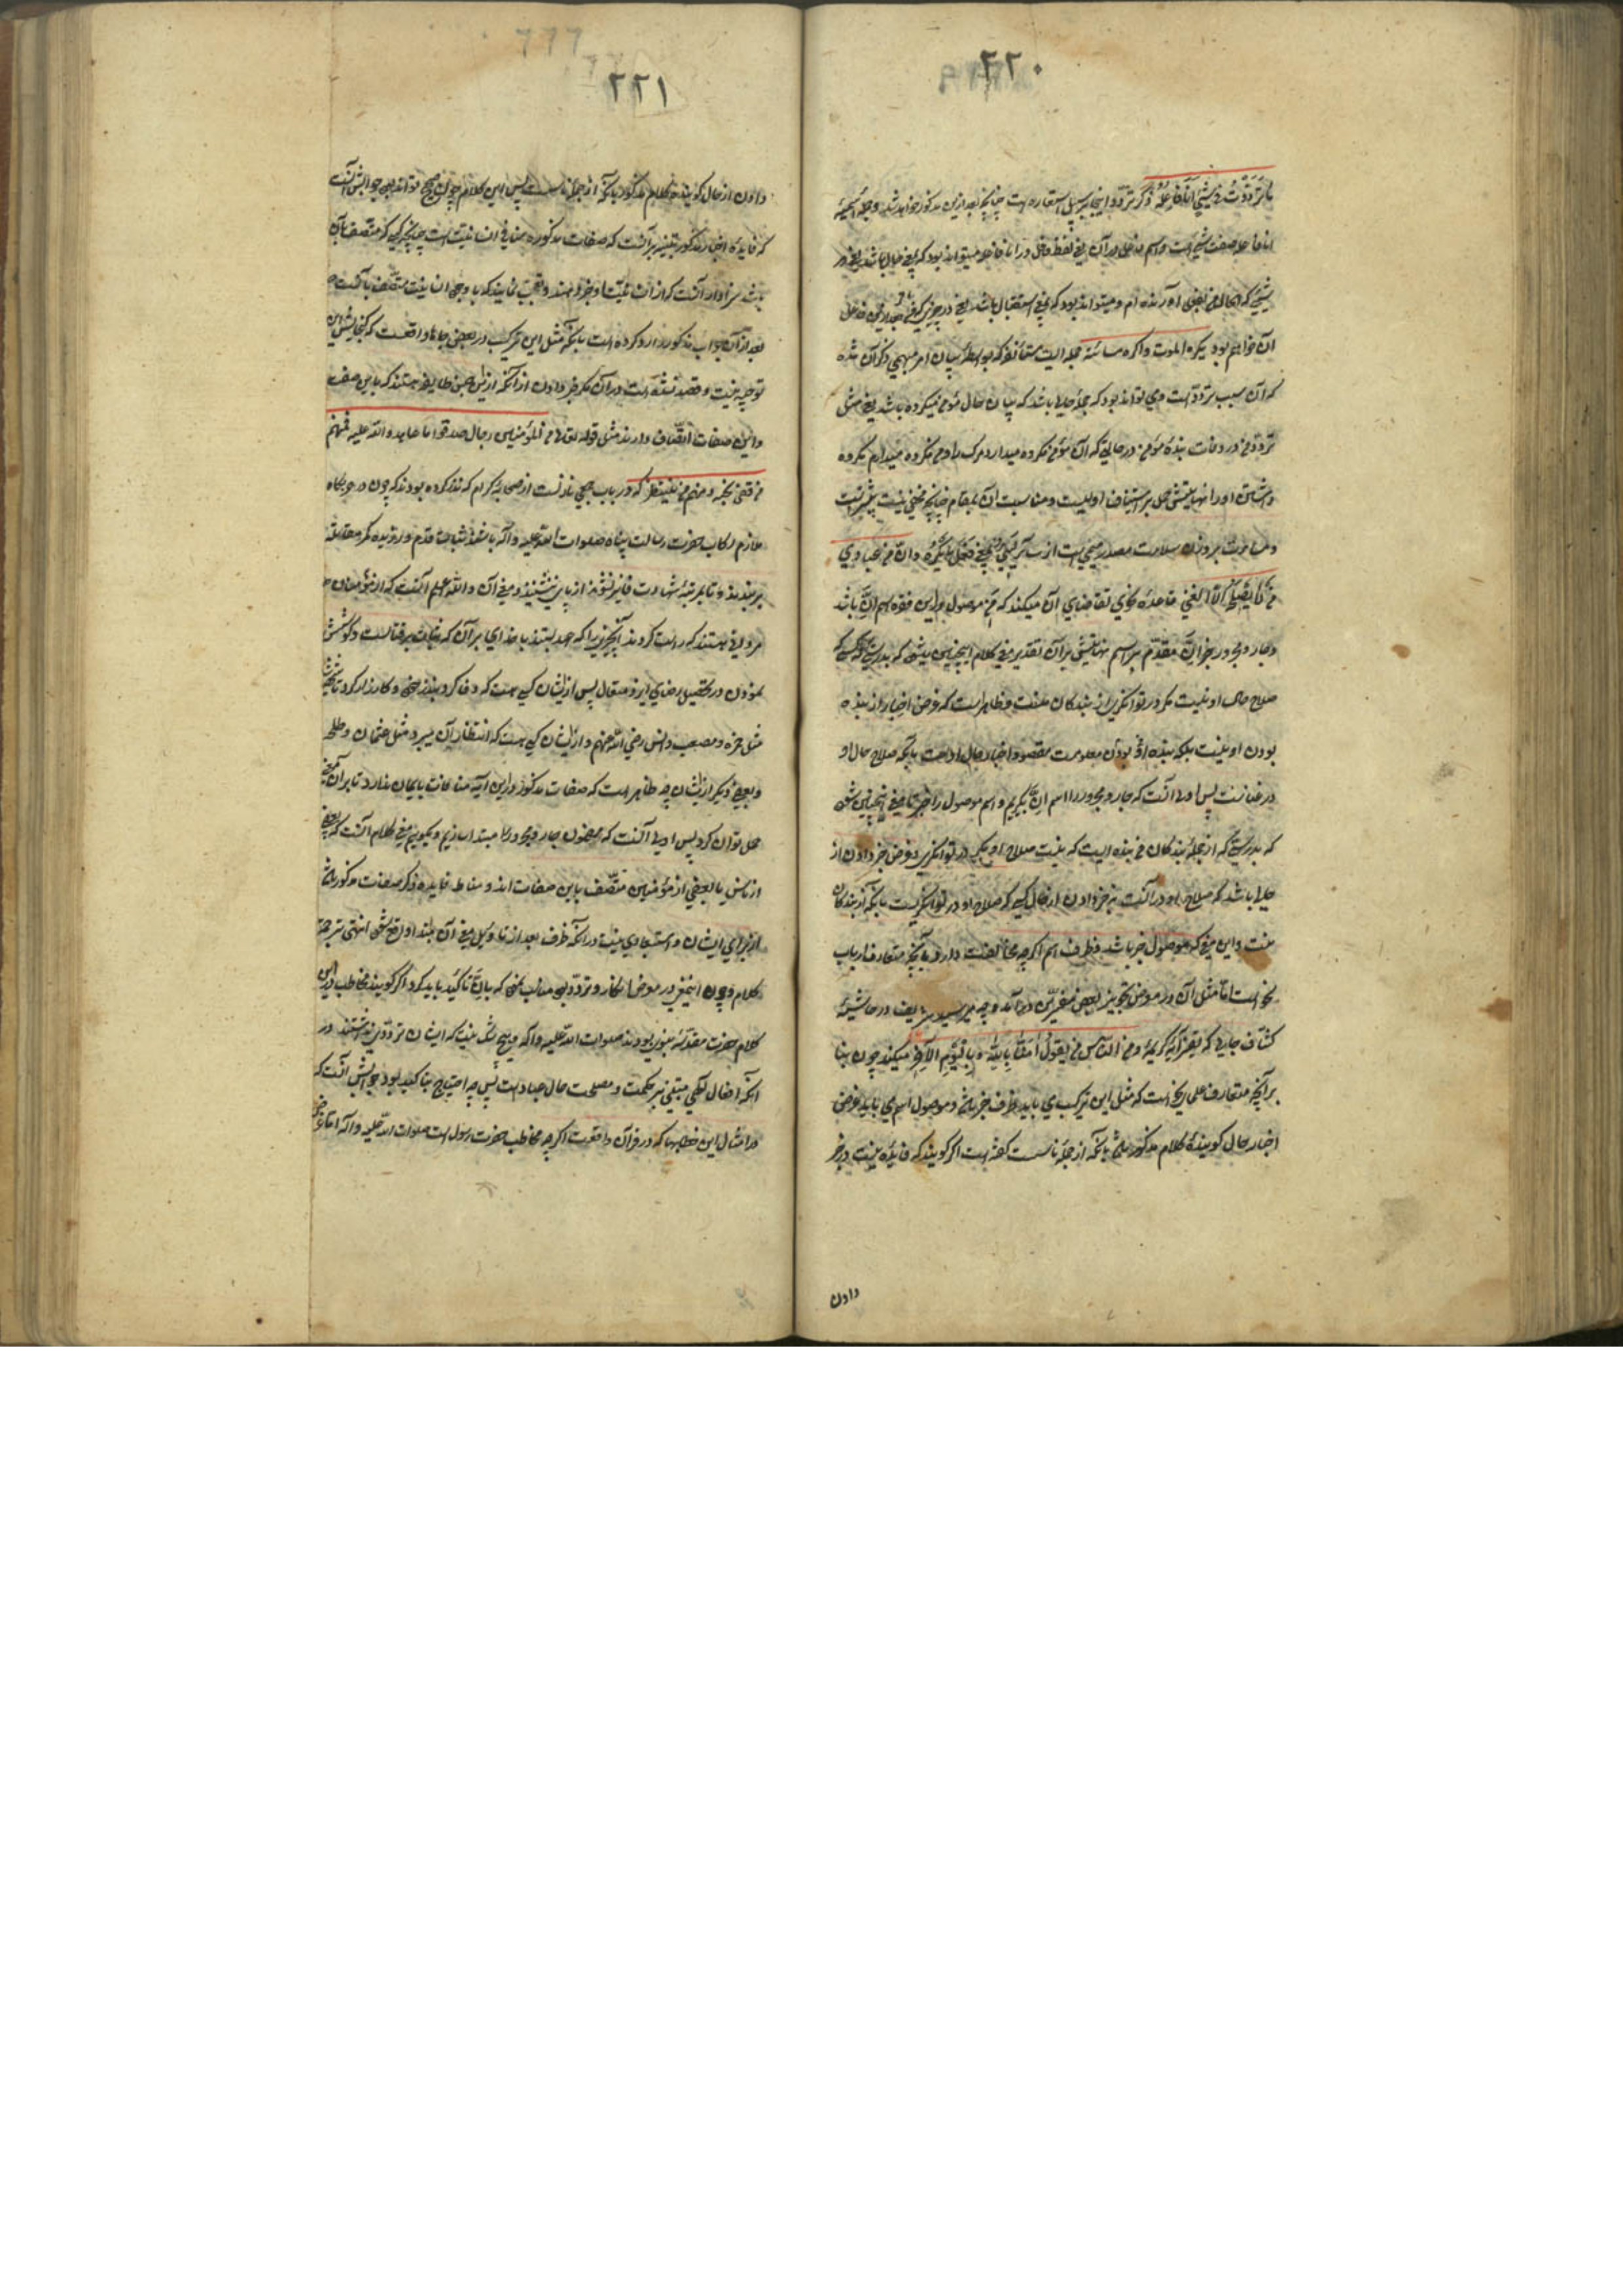 ۲۲۰
ما ترددت فی شیء انا فاعله ذکر تردد اینجا بر سبیل استعاره است چنانچه بعد ازین مذکور خواهد شد و جملهٔ اسمیهٔ
انا فاعله صفت شیء است و اسم فاعل در آن یعنی لفظ فاعل در انا فاعله میتواند بود که بمعنی حال باشد یعنی در
شیئی که الحال من بفعل آورنده ام و میتواند بود که بمعنی استقبال باشد یعنی در چیزی که من بعد ازین فاعل
آن خواهم بود یکره الموت و اکره مسائته جمله ایست مستأنفه که بواسطهٔ بیان امر مبهمی ذکر آن شده
که آن سبب تردد است و می تواند بود که جملهٔ حالیه باشد که بیان حال مؤمن میکرده باشد یعنی مثل
تردد من در وفات بندهٔ مؤمن در حالتی که آن مؤمن مکروه میدارد مرک را و من مکروه میدارم مکروه
داشتن او را نهایتش حمل بر استیناف اولیست و مناسبت آن بمقام چنانچه مخفی نیست بیشتر است
و مسائت بر وزن سلامت مصدر میمی است از ساءَ یعنی فعل ما یکره و ان من عبادی
من لا یصلحه الا الغنی قاعدهٔ نحوی تقاضای آن میکند که من موصول درین فقره اسم ان باشد
و جار و مجرور خبر ان مقدم بر اسم نهایتش بر آن تقدیر معنی کلام اینچنین میشود که بدرستی که کسی که
صلاح حال او نیست مگر در توانگری از بندگان منست و ظاهر است که غرض اخبار از بنده
بودن او نیست بلکه بنده او بودن معلومست مقصود اخبار حال او است بانکه صلاح حال او
در غنا نست پس اولی آنست که جار و مجرور را اسم ان بگیریم و اسم موصول را خبر تا معنی اینچنین شود
که بدرستی که از جملهٔ بندگان من بنده ایست که نیست صلاح او مگر در توانگری و غرض خبر دادن از
حالها باشد که صلاح او در آنست نه خبر دادن از حال کسی که صلاح او در توانگریست بانکه از بندگان
منست و این معنی که موصول خبر باشد و ظرف اسم اگرچه مخالفت دارد با آنچه متعارف ارباب
نحو است اما مثل آن در موضع تجویز بعضی مفسرین درآمده چه میر سید شریف در حاشیهٔ
کشاف جایی که تفسیر آیهٔ کریمهٔ و من الناس من یقول آمنا بالله و بالیوم الآخر میکند چون بنا
بر آنچه متعارف علی نحو است که مثل این ترکیب می باید ظرف خبر باشد و موصول اسم می باید غرض
اخبار حال گویندهٔ کلام مذکور باشد بانکه از جملهٔ ناست گفته است اگر گویند که فایده نیست در خبر
دادن
۲۲۱
دادن از حال گویندهٔ کلام مذکور بانکه از جملهٔ ناست پس این کلام چون صحیح تواند بود جوابش آنست
که فایدهٔ اخبار مذکور تنبیه بر آنست که صفات مذکوره منافی انسانیت است چنانچه کسی که متصف بآن
باشد سزاوار آنست که از انسانیت او خبر دهند و تعجب نمایند که با وجود انسانیت متصف بآنست
بعد از آن جواب مذکور را رد کرده است بانکه مثل این ترکیب در بعضی جاها واقعست که گنجایش این
توجیه نیست و قصد نشده است در آن مگر خبر دادن از آنکه از این جنس طایفه هستند که باین صفت
و این صفات اتصاف دارند مثل قوله تعالی من المؤمنین رجال صدقوا ما عاهدوا الله علیه فمنهم
من قضی نحبه و منهم من ینتظر که در باب جمعی نازلست از صحابه کرام که نذر کرده بودند که چون در حربگاه
ملازم رکاب حضرت رسالت پناه صلوات الله علیه و آله باشند ثبات قدم ورزیده مگر مقابله
بربندند و تا بمرتبهٔ شهادت فایز نشوند از پا ننشینند و معنی آن والله اعلم آنست که از مؤمنان
مردانی هستند که راست کردند آنچیزیرا که عهد بستند با خدای بر آن که ثبات بر قتالست و کوشش
نمودن در تحصیل رضای ایزد متعال پس از ایشان کسی هست که وفا کرد بنذر خود و کارزار کرد تا شهید شد
مثل حمزه و مصعب و انس رضی الله عنهم و از ایشان کسی هست که انتظار آن میبرد مثل عثمان و طلحه
و بعضی دیگر از ایشان چه ظاهر است که صفات مذکور درین آیه منافات بایمان ندارد تا بر آن معنی
حمل توان کرد پس اولی آنست که مضمون جار و مجرور را مبتدا سازیم و بگوییم معنی کلام آنست که بعضی
از ناس یا بعضی از مؤمنین متصف باین صفات اند و مناط فایده ذکر صفات مذکور باشد
از برای ایشان و استبعادی نیست در آنکه ظرف بعد از تأویل معنی آن مبتدا واقع شود انتهی ترجمهٔ
کلامه و چون این معنی در موضع انکار و تردد بود مناسب نمود که بان تأکید باید کرد اگر گویند مخاطب درین
کلام حضرت مقدسهٔ نبوی بودند صلوات الله علیه و آله و هیچ شک نیست که ایشان ترددی نداشتند در
آنکه افعال الهی مبتنی بر حکمت و مصلحت حال عباد است پس چه احتیاج بتاکید بود جوابش آنست که
در امثال این خطابها که در قرآن واقعست اگرچه مخاطب حضرت رسول است صلوات الله علیه و آله اما غرض